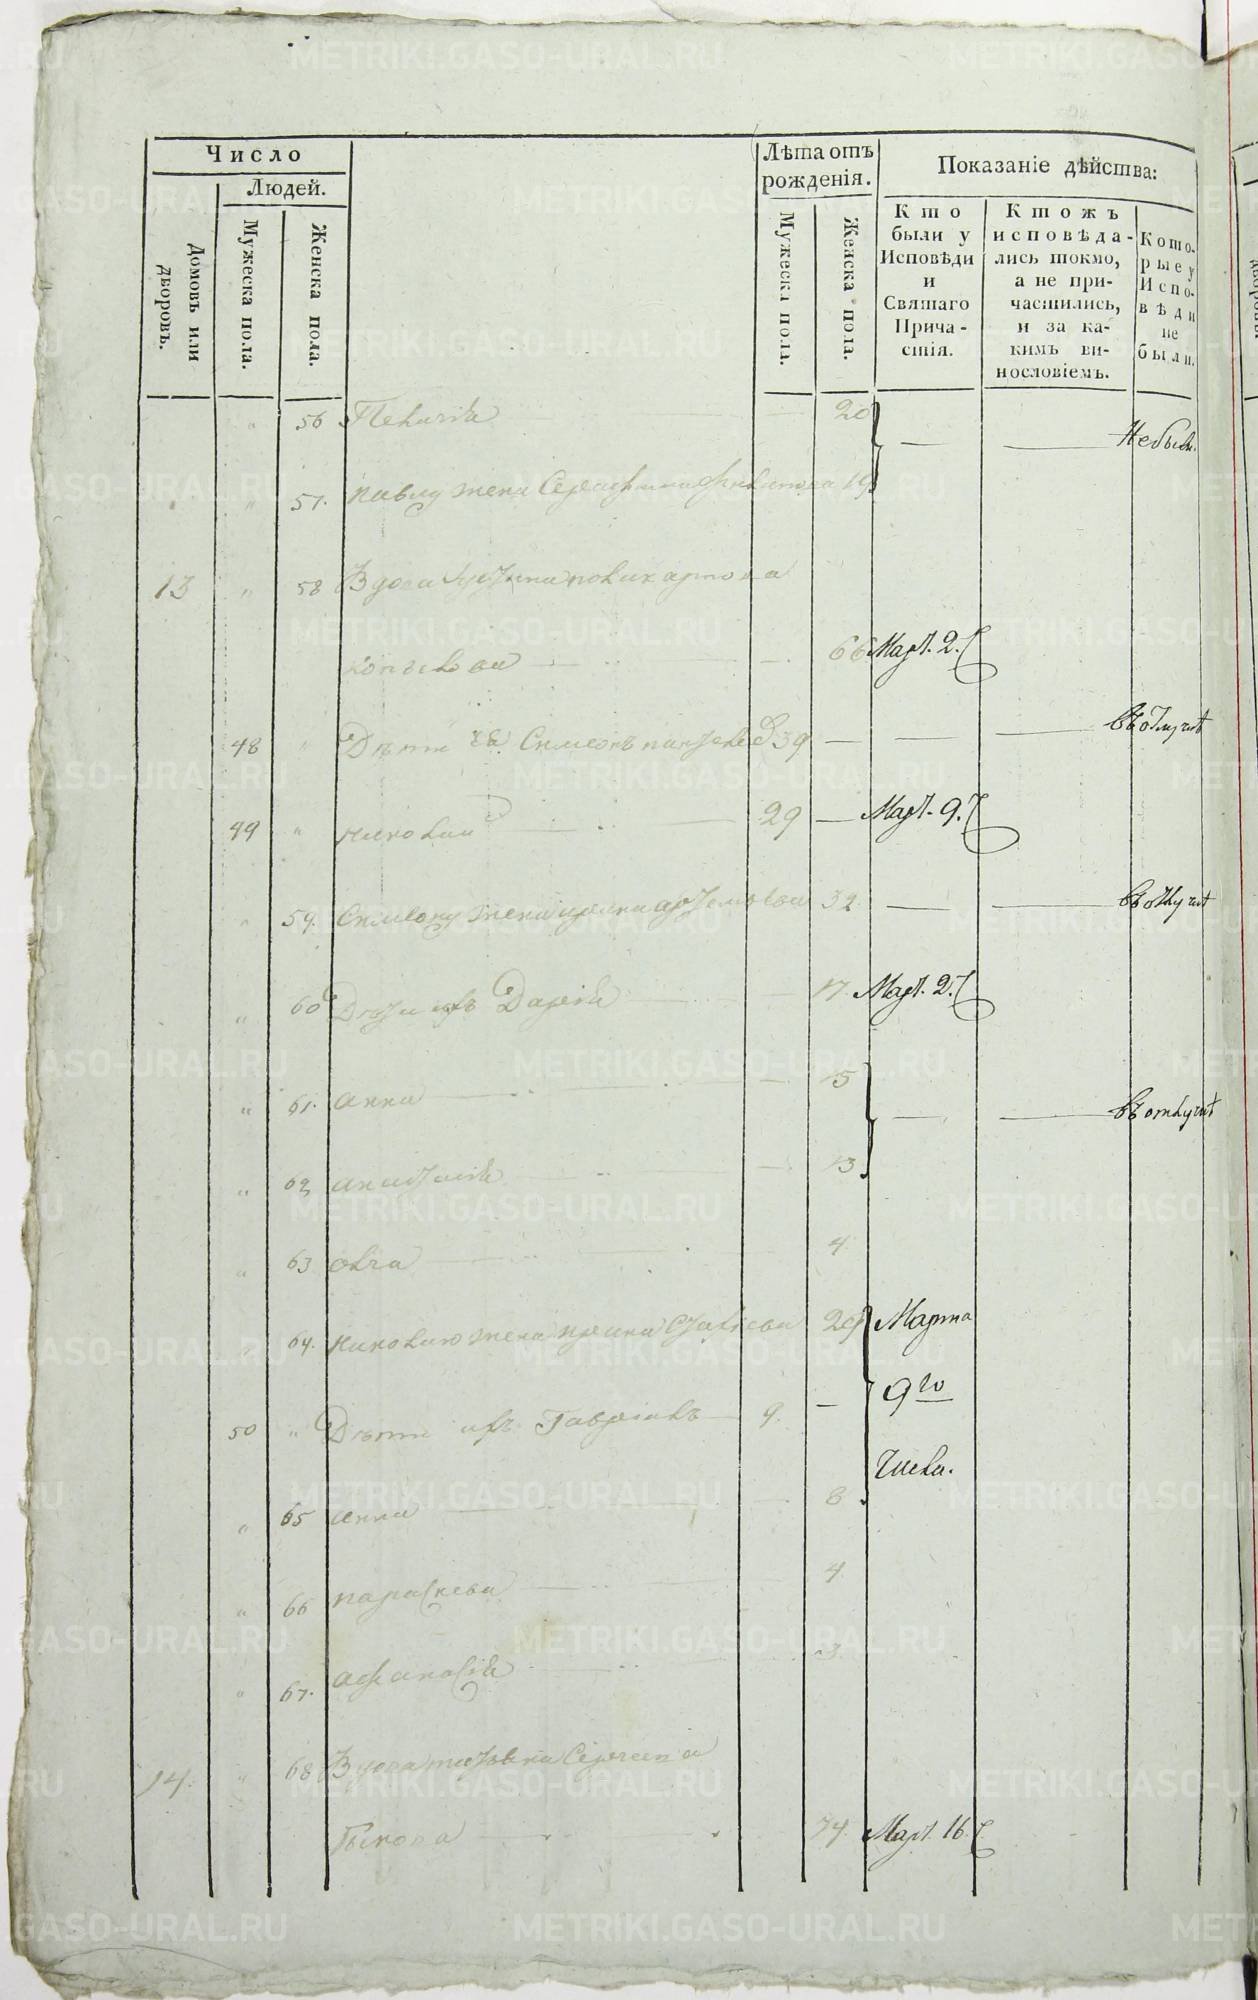 Число
Людей.
Домовъ или дворовъ.
Мужеска пола.
Женска пола.
Лѣта отъ рожденія.
Мужеска пола.
Женска пола.
Показаніе дѣйства:
Кто были у Исповѣди и Святаго Причастія.
Ктожъ исповѣдались токмо, а не причастились, и за какимъ винословіемъ.
Которые у Исповѣди не были.
56 Пелагія 20 Небыли.
57. Павлу жена Серафима 19
13 58 Вдова Поликарпова
66 Март. 2.
48 Дѣти ея Симеонъ 39
49 Николай 29 Март. 9.
59. Симеону жена Ирина Артемьева 32
60 Дѣти ихъ Дарія 17. Март. 2.
61. Анна 15 въ отлучкѣ
62 Анастасія 13
63 Ольга 4
64. Николаю жена 29 Марта
9го
Числа.
50 Дѣти ихъ Гавріилъ 9.
65 Анна 8
66 Параскева 4
67. Афанасія 3
14. 68 Вдова Татьяна Сергеева
Быкова 74. Март. 16.
METRIKI.GASO-URAL.RU